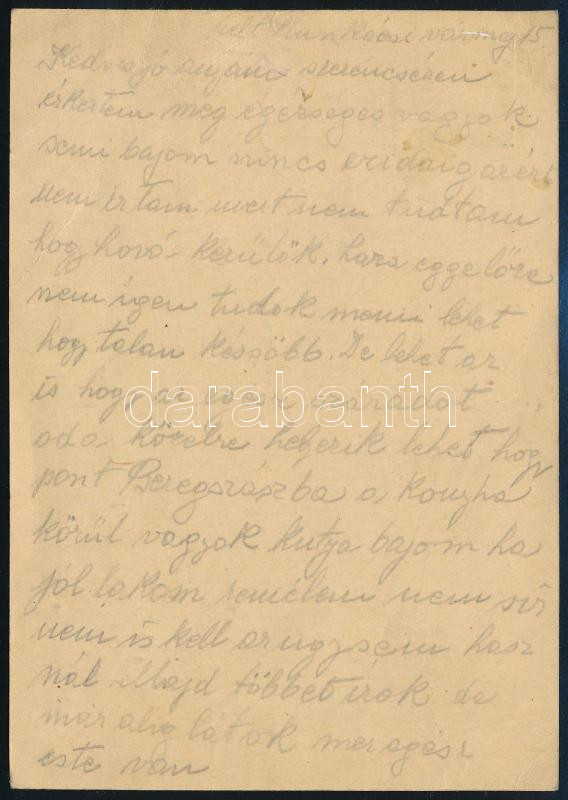 kelt Munkácsi vár maj 15.
Kedves jó anyám szerencsésen
érkeztem meg egésséges vagyok
semi bajom nincs eddaig azért
nem irtam mert nem tudtam
hogy hová kerülök. haza eggelőre
nem igen tudok menni lehet
hogy talan később. De lehet az
is hogy az egész századot
oda közelre helyezik lehet hogy
pont Beregszászba a konyha
körül vagyok kutya bajom ha
jól lakom remélem nem sir
nem is kell az ugysem hasz
nál Majd többet irok de
már alig látok mer egész
este van
darabanth.com